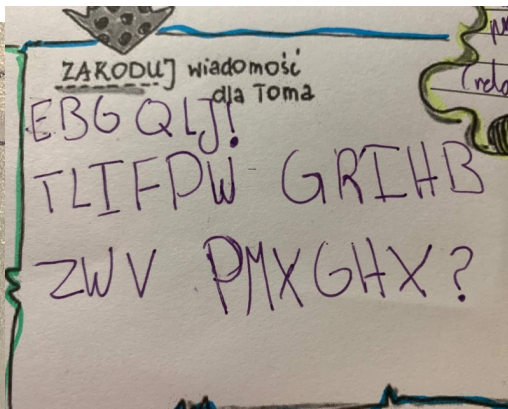 ZAKODUJ wiadomość
dla Toma
EBG QLJ!
TLIFPW GRIHB
ZWV PMXGHX?